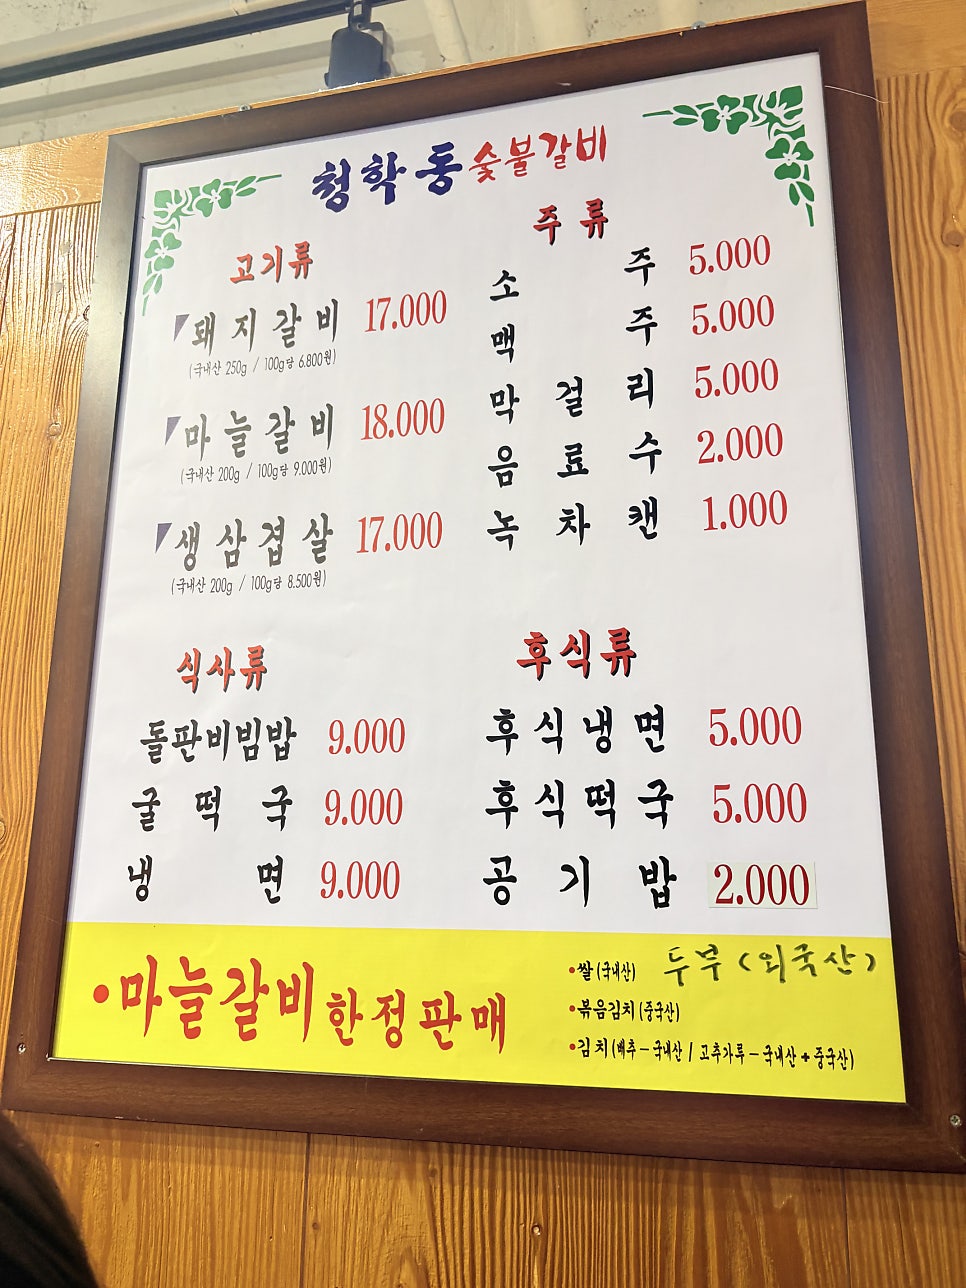 청학동 숯불갈비
고기류
돼지갈비 17.000
(국내산 250g / 100g당 6.800원)
마늘갈비 18.000
(국내산 200g / 100g당 9.000원)
생삼겹살 17.000
(국내산 200g / 100g당 8.500원)
주류
소주 5.000
맥주 5.000
막걸리 5.000
음료수 2.000
녹차캔 1.000
식사류
돌판비빔밥 9.000
굴떡국 9.000
냉면 9.000
후식류
후식냉면 5.000
후식떡국 5.000
공기밥 2.000
•마늘갈비 한정판매
•쌀(국내산) 두부(외국산)
•볶음김치(중국산)
•김치(배추-국내산 / 고추가루-국내산+중국산)